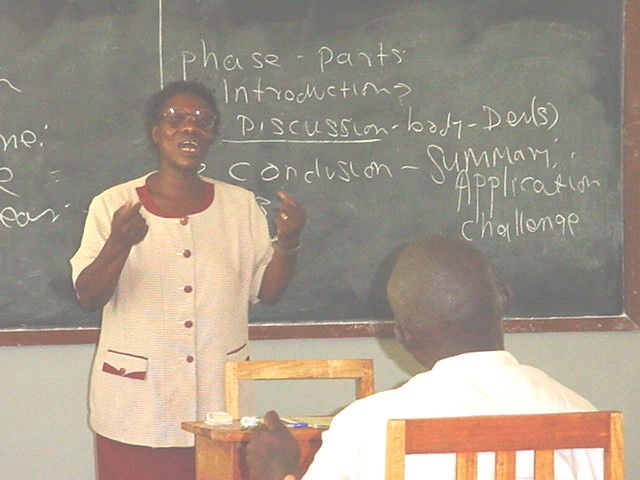 phase - parts
Introduction
DISCUSSION - body - Dev(s)
me:
conclusion - Summary
Application
challenge